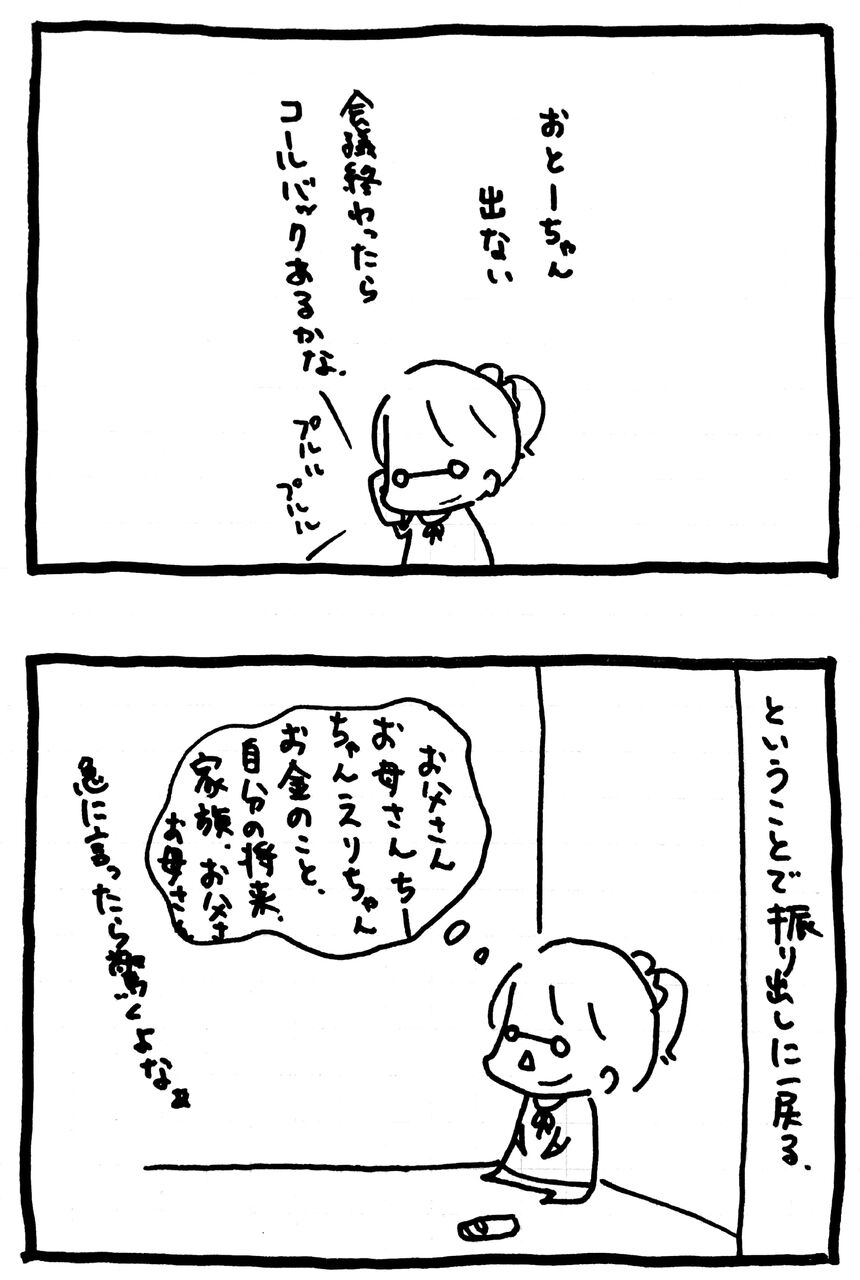 おとーちゃん
出ない
会議終わったら
コールバックあるかな.
プルルル
プルルル
ということで振り出しに戻る.
お父さん
お母さんちー
ちゃんえりちゃん
お金のこと、
自分の将来.
家族. お父さ
お母さん
急に言ったら驚くよな